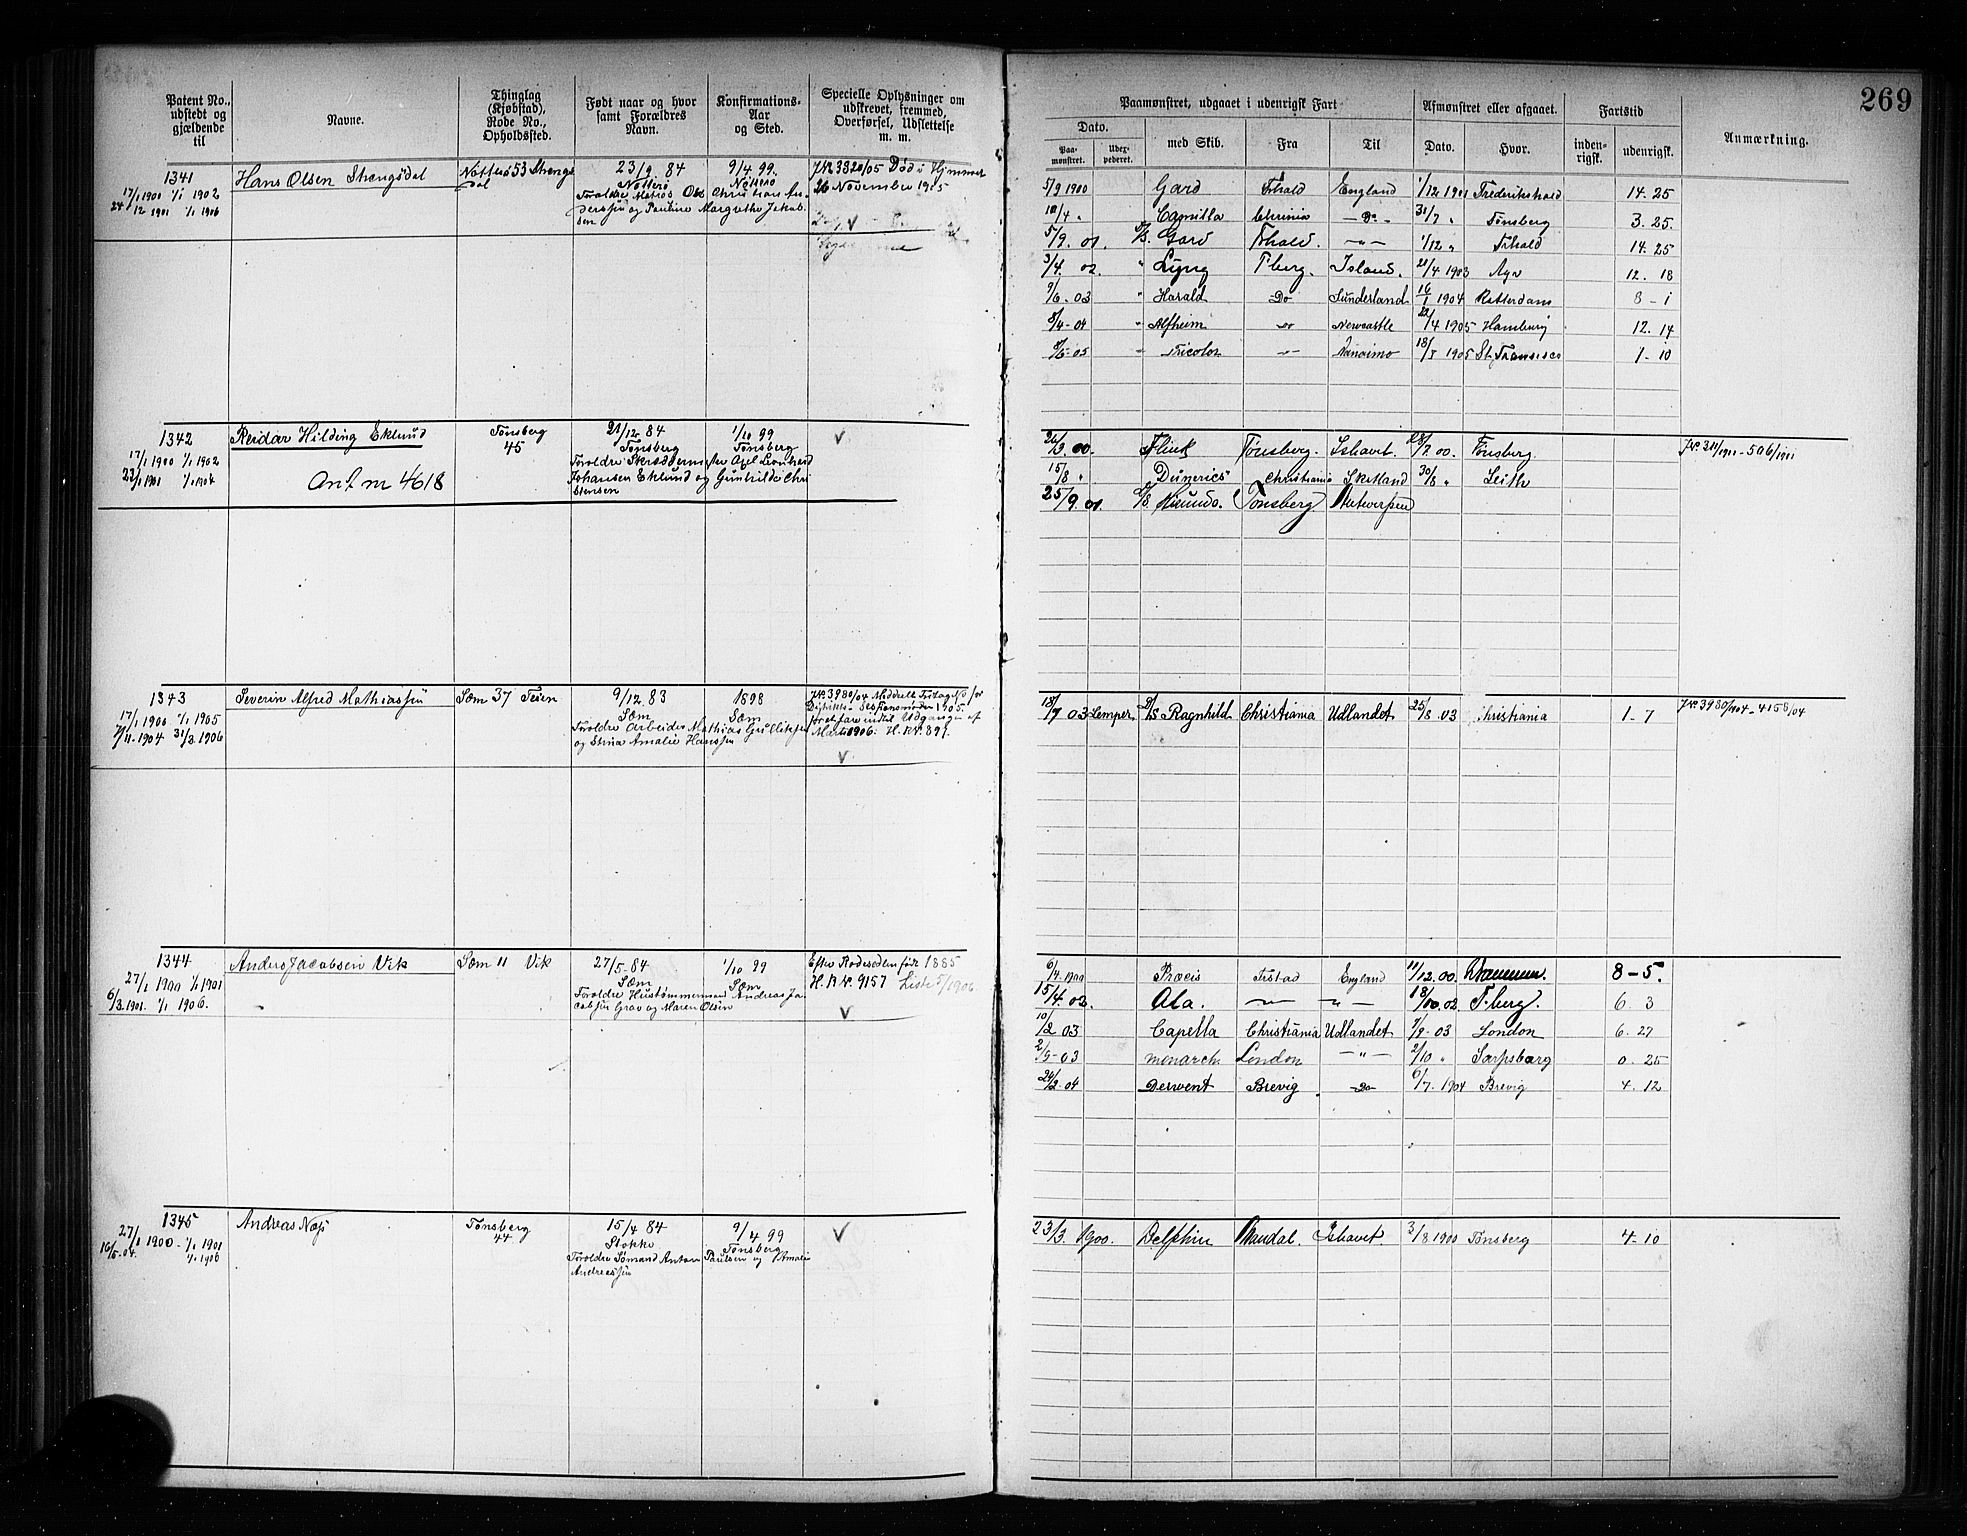 269
Patent No., udstedt og gjældende til
Navne.
Thinglag (Kjøbstad), Rode No., Opholdssted.
Født naar og hvor samt Forældres Navn.
Konfirmations-Aar og Sted.
Specielle Oplysninger om udskrevet, fremmed, Overførsel, Udslettelse m. m.
Paamønstret, udgaaet i udenrigsk Fart
Afmønstret eller afgaaet.
Fartstid
Anmærkning.
Dato.
Paa-mønstret.
Udex-pederet.
med Skib.
Fra
Til
Dato.
Hvor.
inden-rigsk.
udenrigsk.
1341
17/1 1900 1/1 1902
24/12 1901 1/1 1906
Hans Olsen
Nøtterø 53
23/9 84
Nøtterø
Forældre Matros Ole Christian Andersen og Pauline Margrethe Jakobsen
9/4 99.
Nøtterø
JNo 3320/05 Død i Hjemmet
26 November 1905
5/9 1900 Gard Frhald England 1/12 1901 Frederikshald 14. 25
10/4 " Camilla Chrinia - Do - 31/7 " Tønsberg 3. 25.
5/9. 01. D/S. Gard Frhald. - " - 1/12 " Frhald 14. 25
3/4. 02. " Lyng Tberg. Island. 21/4 1903 12. 18
9/6. 03 " Harald Do Sunderland 16/1 1904 Rotterdam 8 - 1
8/4-04 " Alfheim Do Newcastle 22/4 1905 Hamburg 12. 14
05 " Tricolor Nanaimo 1905 St. Fransisco 1 - 10
1342
17/1 1900 1/1 1902
23/1 1901 1/1 1904
Reidar Hilding Eklund
Ant. nr 4618
Tønsberg
45
21/12 84
Tønsberg
Forældre Skræddermester Axel Leonhard
Johansen Eklund og Gunhilda Christensen
1/10 99
Tønsberg
V
26/3. 00. Flink Tønsberg. Ishavet. 28/7 00. Tønsberg.
15/8 " Christiania Skotland 30/8 " Leith
25/9. 01. Tønsberg. Antwerpen
JNo. 311/1911 - 506/1911
1343
17/1 1900 1/1 1905
7/11-1904 31/3 1906
Severin Alfred Mathiassen
Sæm 37 Teien
9/12 83
Sæm
Forældre Arbeider Mathias Gulliksen
og Stina Amalie Hanssen
1898
Sæm
JNo. 3980/04 Meddelt Fritagelse for
Distrikts-Sessionsmøder 1905.
foretfare indtil Udgangen af
Marts 1906. H. R No. 891.
V
18/7 03 Semper D/S. Ragnhild Christiania Udlandet 25/8. 03 Christiania 1 - 7
JNo 3980/1904 - 4158/04
1344
27/1 1900 1/1 1901
6/3 1901. 1/1 1906.
Anders Jacobsen Vik
Sæm 11 Vik
27/5-84
Sæm
Forældre Hustømmermand Andreas Jacobsen Grav og Maren Olsen
1/10 99
Sæm
Efter Rodesedlen født 1885
H. R No. 9157 Liste 5/1906
V
6/4. 1900 Præcis Frstad England 11/12. 00. 8 - 5.
15/4. 02. Ala. " - " - 18/10. 02. T.berg. 6. 3
10/2 03 Capella Christiania Udlandet 7/9 - 03 London 6. 27
2/9-03 Monarch. London - " - 2/10 " Sarpsborg 0. 25
24/2 04 Derwent Brevig Do 6/7. 1904 Brevig 4. 12
1345
27/1 1900 - 1/1 1901
16/5-04. 1/1 1906
Andreas Næs
Tønsberg
44
15/4 84
Stokke
Forældre Sømand Anton Paulsen og Amalie
Andreassen
9/4 99
Tønsberg
V
23/3. 1900. Delphin Mandal. Ishavet. 3/8 1900 Tønsberg 4 - 10